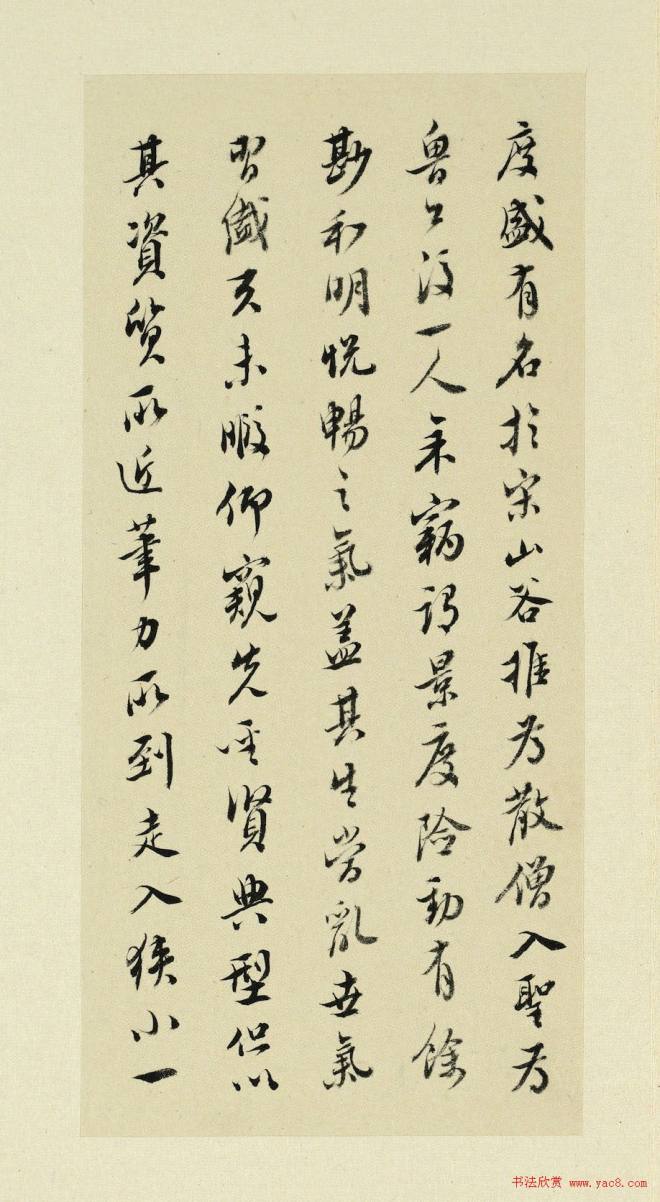 度盛有名於宋山谷推为散僧入聖为
魯公後一人矣竊謂景度險勁有餘
尠和明悦暢之氣盖其生當亂世氣
習儳 未暇仰窺先聖賢典型但以
其資質所近筆力所到走入狹小一
书法欣赏 www.yac8.com